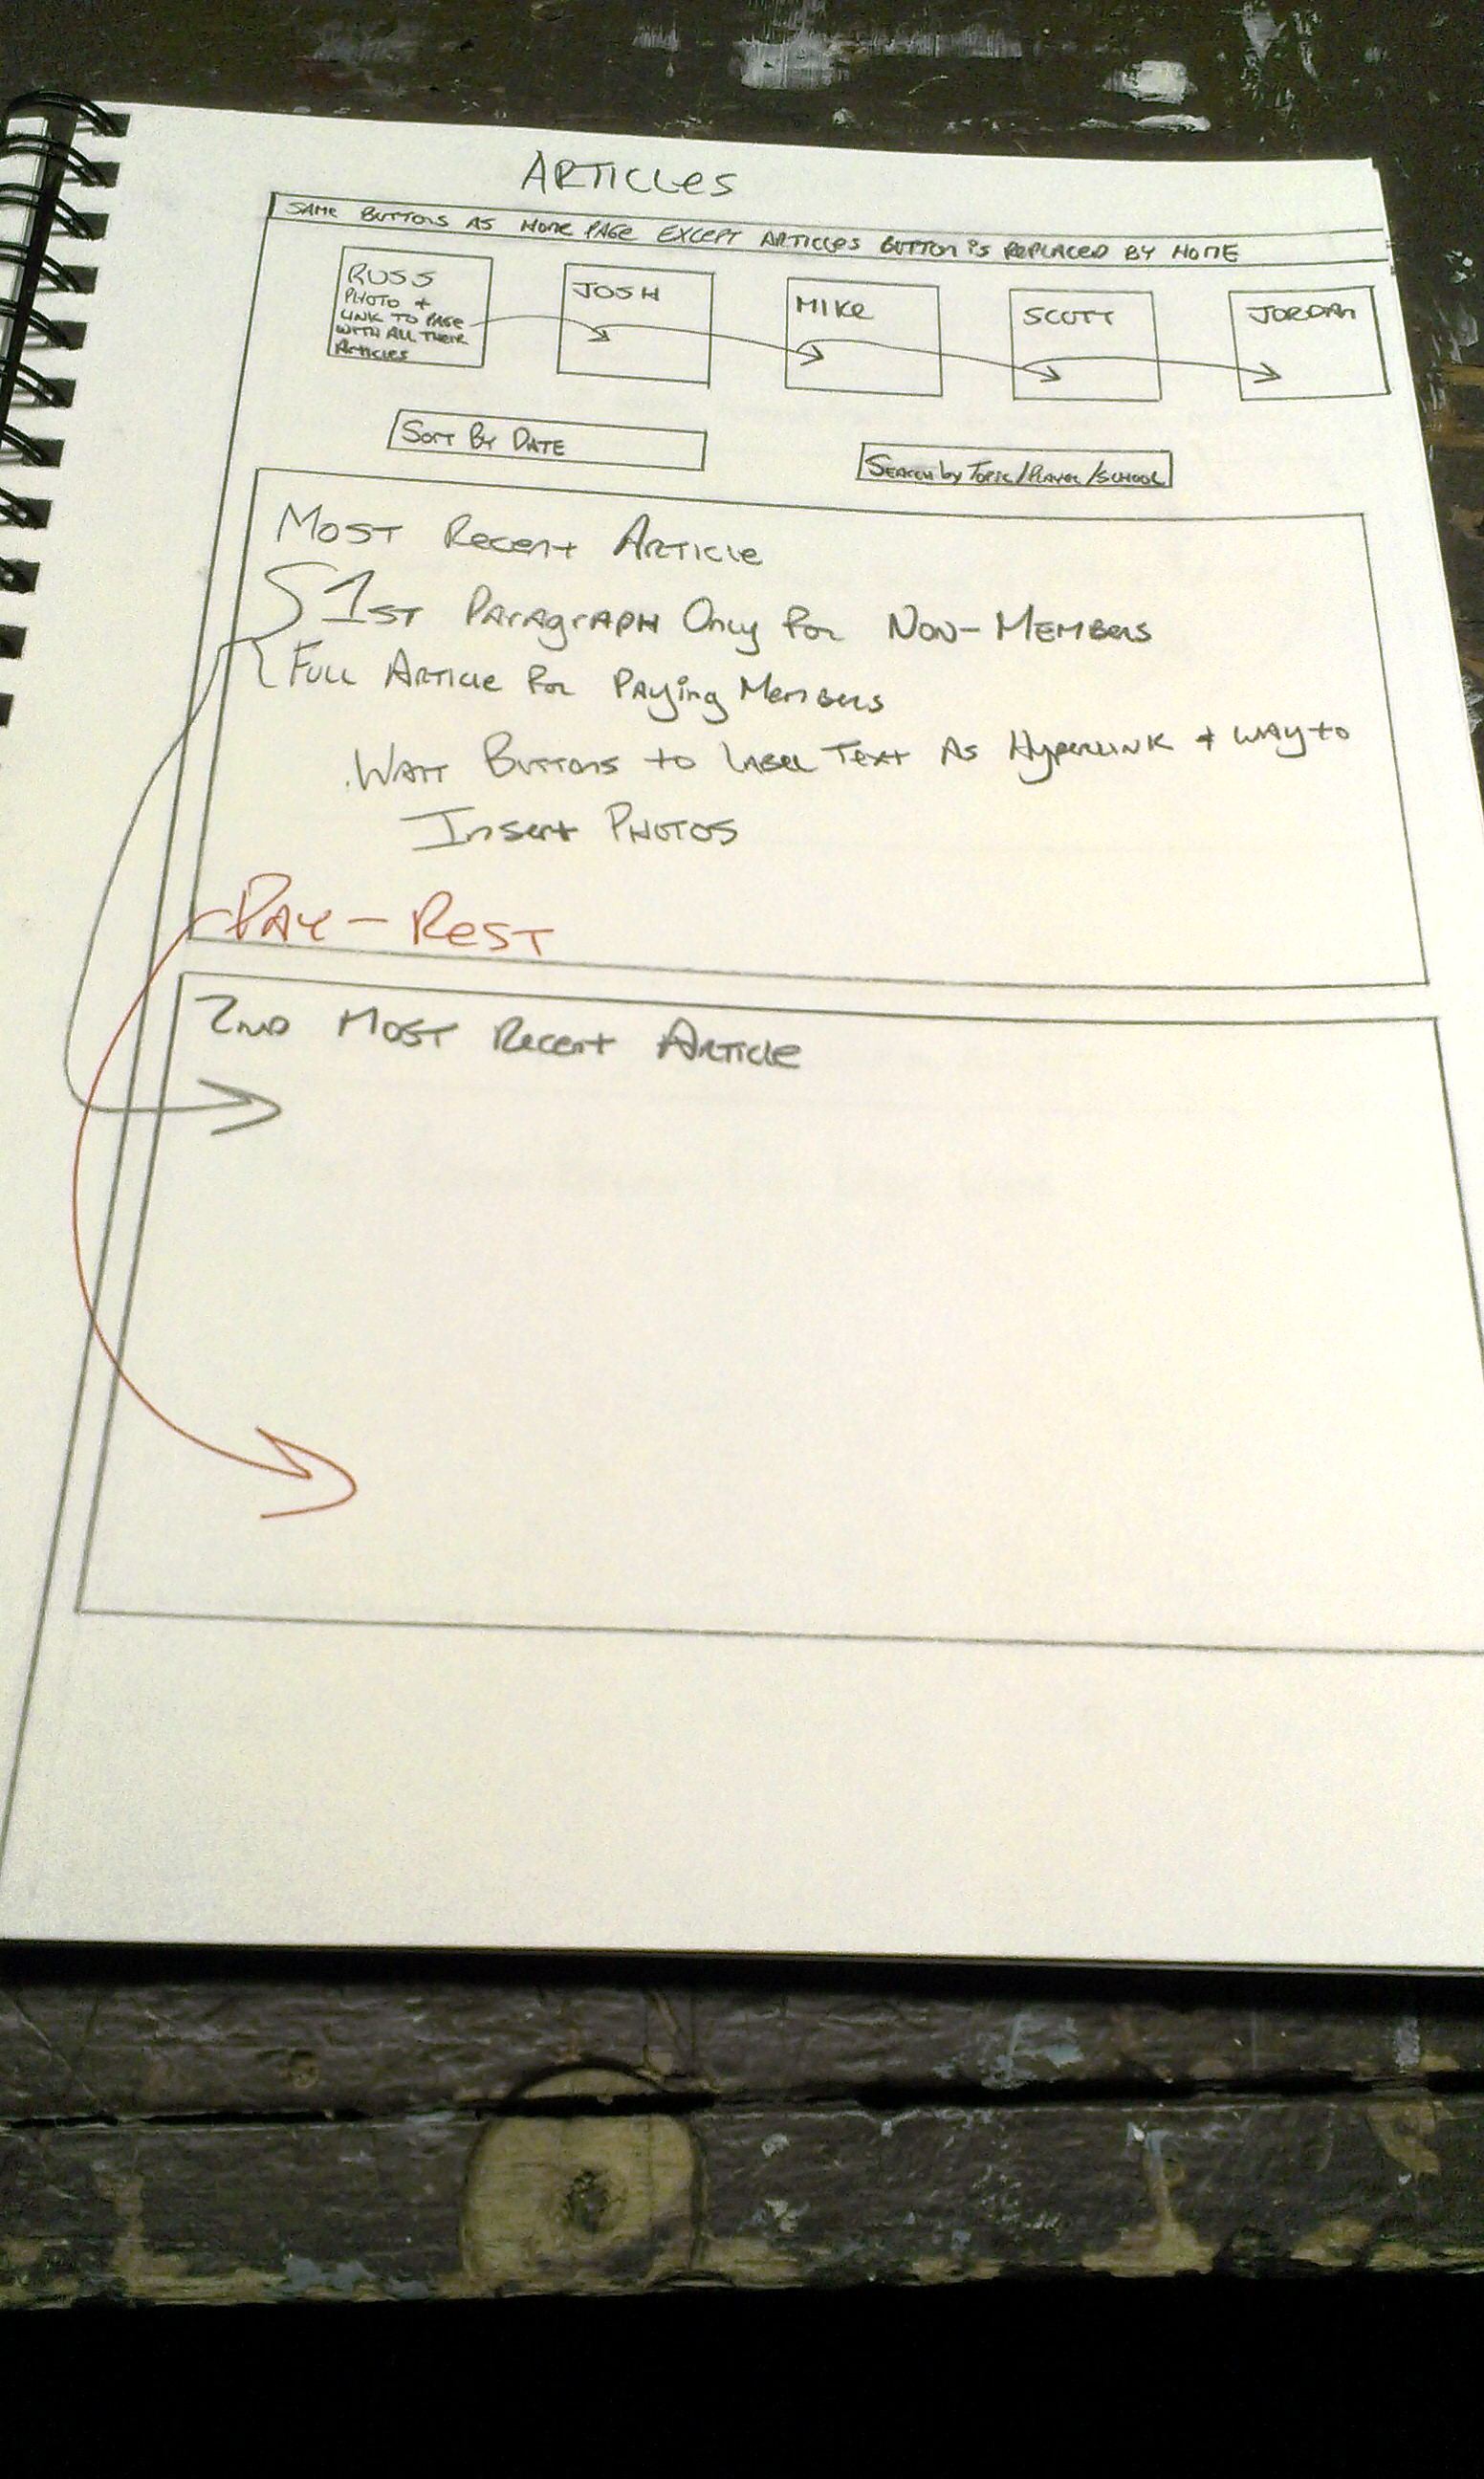 ARTICLES
SAME BUTTONS AS HOME PAGE EXCEPT ARTICLES BUTTON IS REPLACED BY HOME
RUSS
PHOTO +
LINK TO PAGE
WITH ALL THEIR
ARTICLES
JOSH
MIKE
SCOTT
JORDAN
SORT BY DATE
SEARCH by TOPIC/PLAYER/SCHOOL
MOST RECENT ARTICLE
1ST PARAGRAPH ONLY FOR NON-MEMBERS
FULL ARTICLE FOR PAYING MEMBERS
WANT BUTTONS TO LABEL TEXT AS HYPERLINK + WAY TO
INSERT PHOTOS
PAY - REST
2ND MOST RECENT ARTICLE